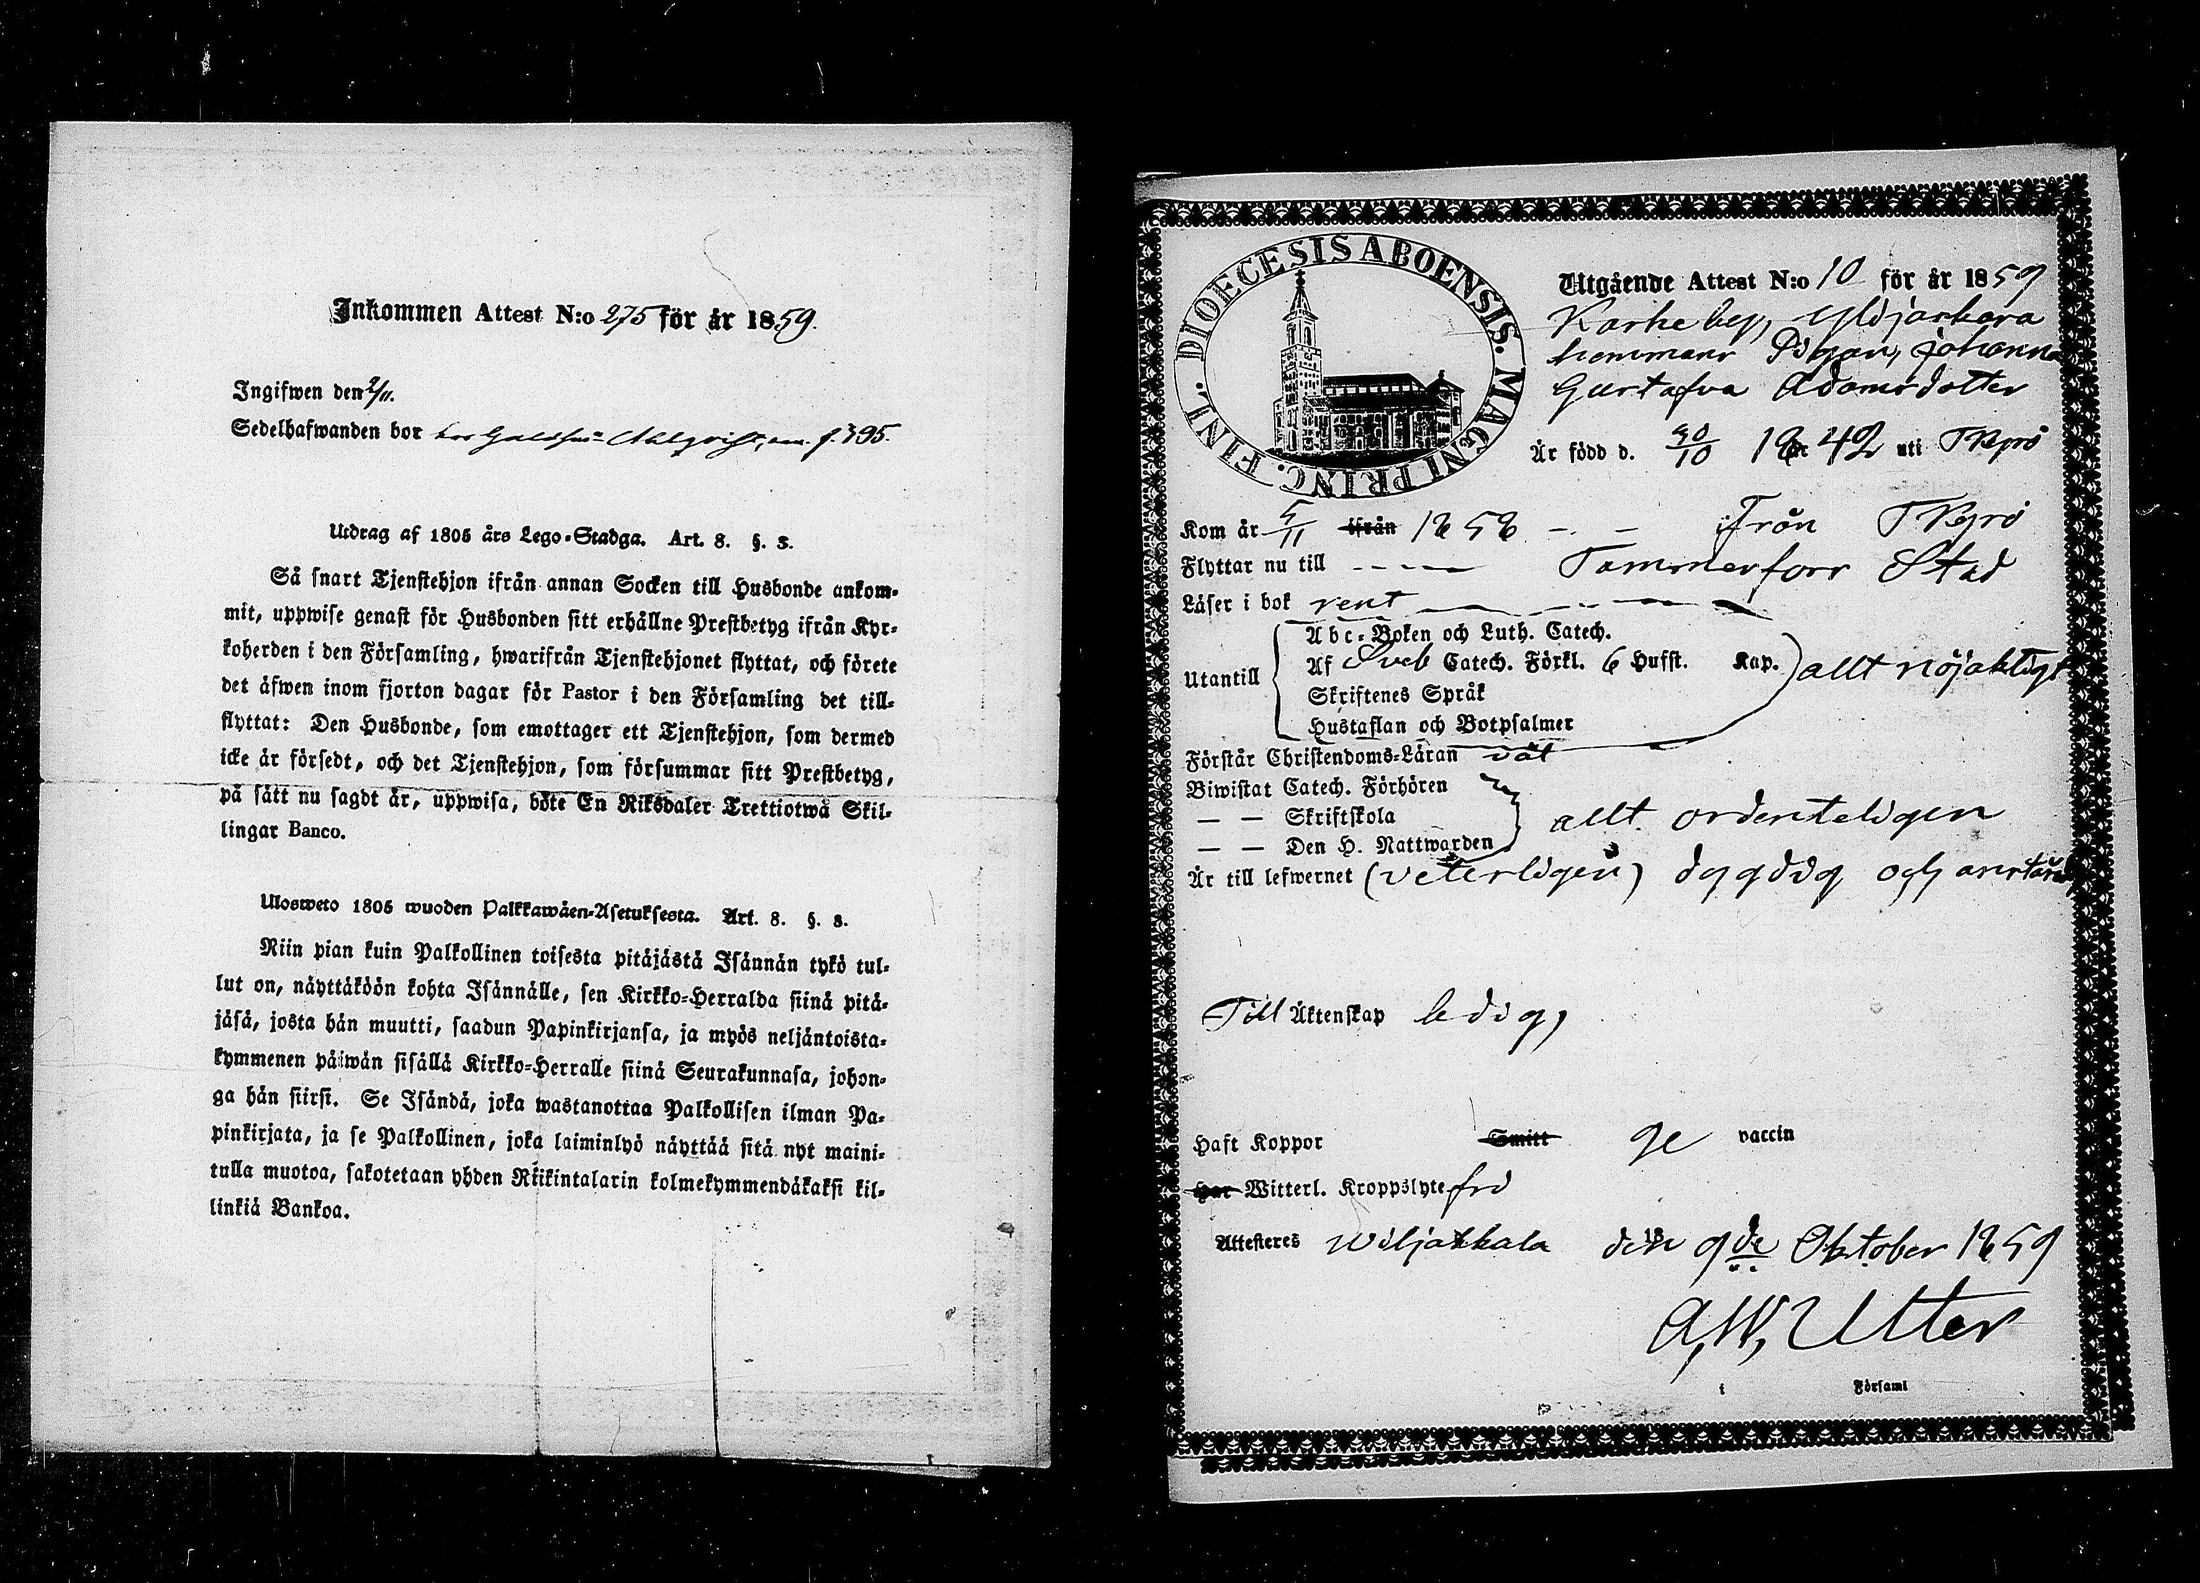 Inkommen Attest N:o 275 för år 1859.
Ingifwen den 2/11.
Sedelhafwanden bor hos
Utdrag af 1805 års Lego-Stadga. Art. 8. §. 3.
Så snart Tjenstehjon ifrån annan Socken till Husbonde ankom-
mit, uppwise genast för Husbonden sitt erhållne Prestbetyg ifrån Kyr-
koherden i den Församling, hwarifrån Tjenstehjonet flyttat, och förete
det äfwen inom fjorton dagar för Pastor i den Församling det till-
flyttat: Den Husbonde, som emottager ett Tjenstehjon, som dermed
icke är försedt, och det Tjenstehjon, som försummar sitt Prestbetyg,
på sätt nu sagdt är, uppwisa, böte En Riksdaler Trettiotwå Skil-
lingar Banco.
Ulosweto 1805 wuoden Palkkawäen-Asetuksesta. Art. 8. §. 3.
Niin pian kuin Palkollinen toisesta pitäjästä Isännän tykö tul-
lut on, näyttäköön kohta Isännälle, sen Kirkko-Herralda siinä pitä-
jäsä, josta hän muutti, saadun Papinkirjansa, ja myös neljäntoista-
kymmenen päiwän sisällä Kirkko-Herralle siinä Seurakunnasa, johon-
ga hän siirsi. Se Isändä, joka wastanottaa Palkollisen ilman Pa-
pinkirjata, ja se Palkollinen, joka laiminlyö näyttää sitä nyt maini-
tulla muotoa, sakotetaan yhden Riikintalarin kolmekymmendäkaksi kil-
linkiä Bankoa.
DIOECESIS ABOENSIS. MAGNI PRINC. FINL.
Utgående Attest N:o 10 för år 1859
Karhe by, Yldjärkara
hemmans Pigan, Johanna
Gustafva Adamsdotter
Är född d. 30/10 1842 uti TKyrö
Kom år 5/11 ifrån 1858 - - ifrån TKyrö
Flyttar nu till - - - - Tammerfors Stad
Läser i bok rent
Abc-Boken och Luth. Catech.
Utantill Af Sveb Catech. Förkl. 6 Hufst. Kap. allt nöjaktigt
Skriftenes Språk
Hustaflan och Botpsalmer
Förstår Christendoms-Läran
Biwistat Catech. Förhören
— — Skriftskola allt ordenteligen
— — Den H. Nattwarden
Är till lefwernet (veterligen) dygdig och
Till Äktenskap ledig,
Haft Koppor Smitt ge vaccin
Har Witterl. Kroppslyte fri
Attesteres Wiljakkala den 9de Oktober 1859
A, W, Utter
i Församl